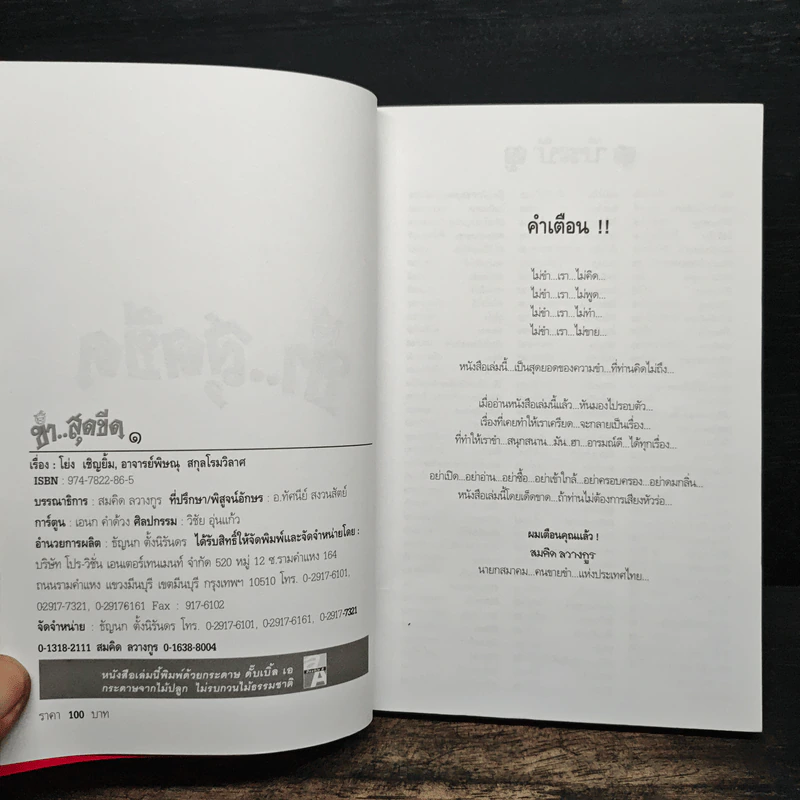 ขำ..สุดขีด ๑
เรื่อง : โย่ง เชิญยิ้ม, อาจารย์พิษณุ สกุลโรมวิลาศ
ISBN : 974-7822-86-5
บรรณาธิการ : สมคิด ลวางกูร ที่ปรึกษา/พิสูจน์อักษร : อ.ทัศนีย์ สงวนสัตย์
การ์ตูน : เอนก คำด้วง ศิลปกรรม : วิชัย อุ่นแก้ว
อำนวยการผลิต : ธัญนก ตั้งนิรันดร ได้รับสิทธิ์ให้จัดพิมพ์และจัดจำหน่ายโดย :
บริษัท โปร-วิชั่น เอนเตอร์เทนเมนท์ จำกัด 520 หมู่ 12 ซ.รามคำแหง 164
ถนนรามคำแหง แขวงมีนบุรี เขตมีนบุรี กรุงเทพฯ 10510 โทร. 0-2917-6101,
02917-7321, 0-29176161 Fax : 917-6102
จัดจำหน่าย : ธัญนก ตั้งนิรันดร โทร. 0-2917-6101, 0-2917-6161, 0-2917-7321
0-1318-2111 สมคิด ลวางกูร 0-1638-8004
หนังสือเล่มนี้พิมพ์ด้วยกระดาษ ดั๊บเบิ้ล เอ
กระดาษจากไม้ปลูก ไม่รบกวนไม้ธรรมชาติ
ราคา 100 บาท
คำเตือน !!
ไม่ขำ...เรา...ไม่คิด...
ไม่ขำ...เรา...ไม่พูด...
ไม่ขำ...เรา...ไม่ทำ...
ไม่ขำ...เรา...ไม่ขาย...
หนังสือเล่มนี้...เป็นสุดยอดของความขำ...ที่ท่านคิดไม่ถึง...
เมื่ออ่านหนังสือเล่มนี้แล้ว...หันมองไปรอบตัว...
เรื่องที่เคยทำให้เราเครียด...จะกลายเป็นเรื่อง...
ที่ทำให้เราขำ...สนุกสนาน...มัน..ฮา...อารมณ์ดี...ได้ทุกเรื่อง...
อย่าเปิด...อย่าอ่าน...อย่าซื้อ...อย่าเข้าใกล้...อย่าครอบครอง...อย่าดมกลิ่น...
หนังสือเล่มนี้โดยเด็ดขาด...ถ้าท่านไม่ต้องการเสียงหัวร่อ...
ผมเตือนคุณแล้ว !
สมคิด ลวางกูร
นายกสมาคม...คนขายขำ...แห่งประเทศไทย...